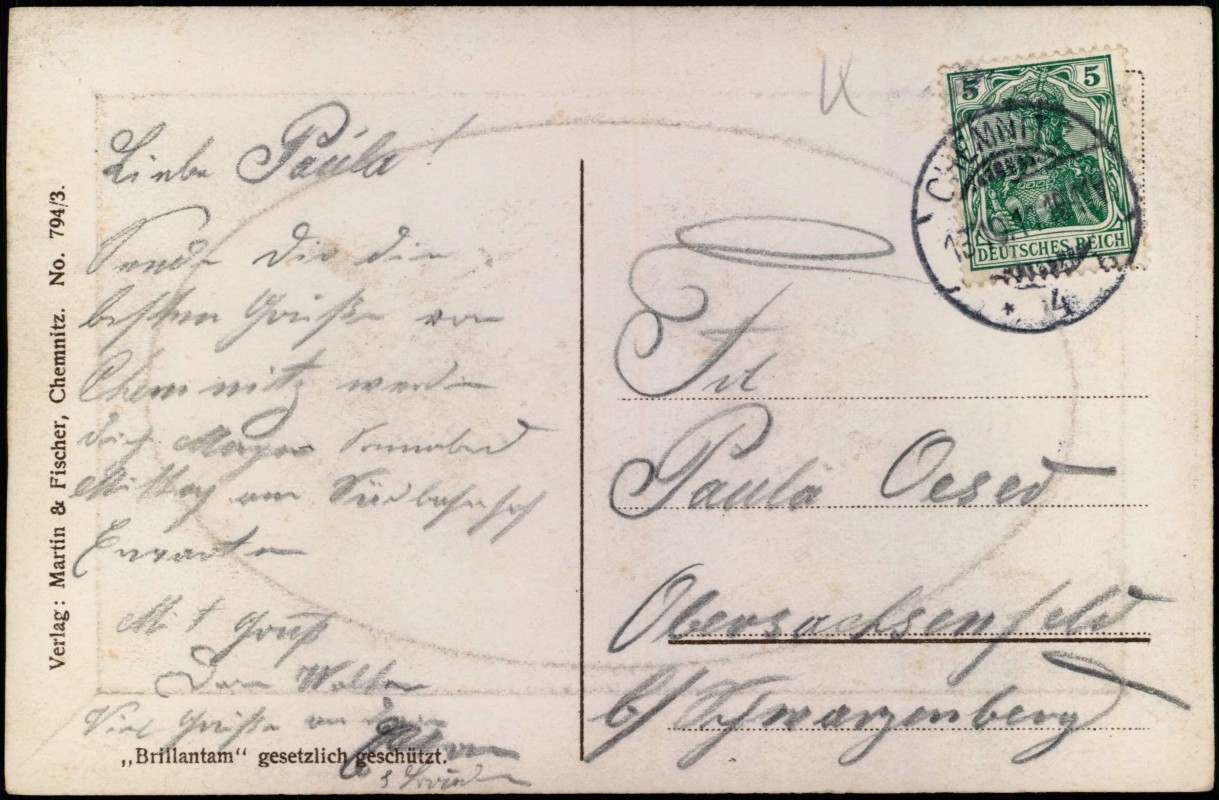 Liebe Paula!
Sende dir die
besten Grüße von
Chemnitz werde
dich Morgen Sonnabend
Mittag am Südbahnhof
Erwarten
Mit Gruß
Dein Walter
Viel Grüße an deine
Verlag: Martin & Fischer, Chemnitz. No. 794/3.
„Brillantam“ gesetzlich geschützt.
5 5
DEUTSCHES REICH
CHEMNITZ
* 4
Frl
Paula Oeser
Obersachsenfeld
b/ Schwarzenberg